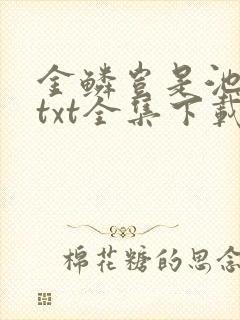 金鳞岂是池
txt全集下载
棉花糖的思念